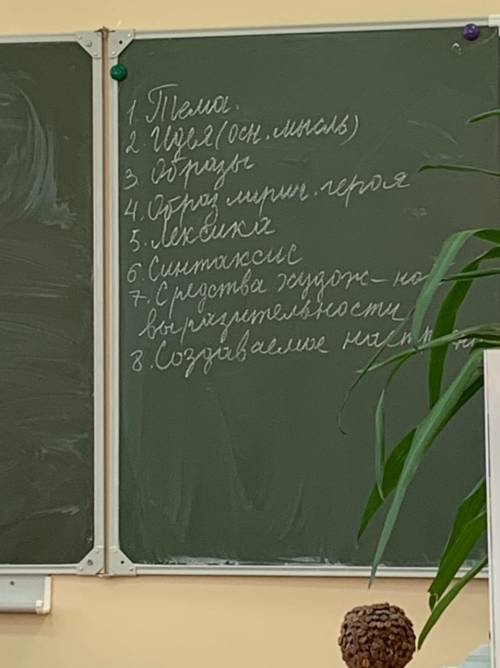 1. Тема.
2. Идея (осн. мысль)
3. Образы
4. Образ лирич. героя
5. Лексика
6. Синтаксис
7. Средства худож-
выразительности
8. Создаваемое